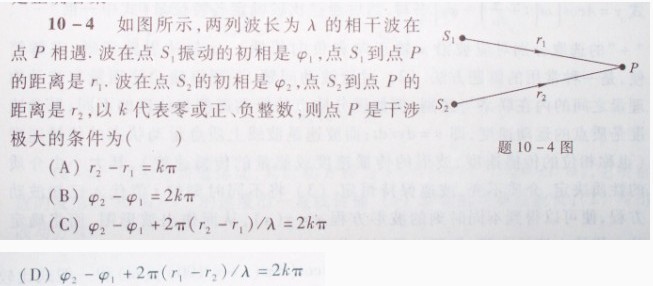 10-4 如图所示,两列波长为 λ 的相干波在
点 P 相遇. 波在点 S₁振动的初相是 φ₁,点 S₁到点 P
的距离是 r₁. 波在点 S₂的初相是 φ₂,点 S₂到点 P 的
距离是 r₂,以 k 代表零或正、负整数,则点 P 是干涉
极大的条件为( )
(A) r₂ - r₁ = kπ
(B) φ₂ - φ₁ = 2kπ
(C) φ₂ - φ₁ + 2π(r₂ - r₁)/λ = 2kπ
(D) φ₂ - φ₁ + 2π(r₁ - r₂)/λ = 2kπ
S₁
r₁
P
r₂
S₂
题 10-4 图